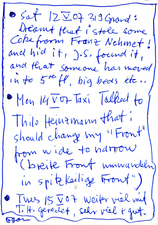 • Sat 12 V 07 319 Grand:
Dreamt that i stole some
Coke form Franz Nehmet!
and hid it, J.S. found it,
and that someone has moved
in to 5th fl, big beds etc..
• Mon 14 V 07 Taxi Talked to
Thilo Heinzmann that i
should change my "Front"
from wide to narrow
(breite Front umwandeln
in spitzkeilige Front")
• Tues 15 V 07 weiter viel mit
T.H. geredet, sehr viel & gut.